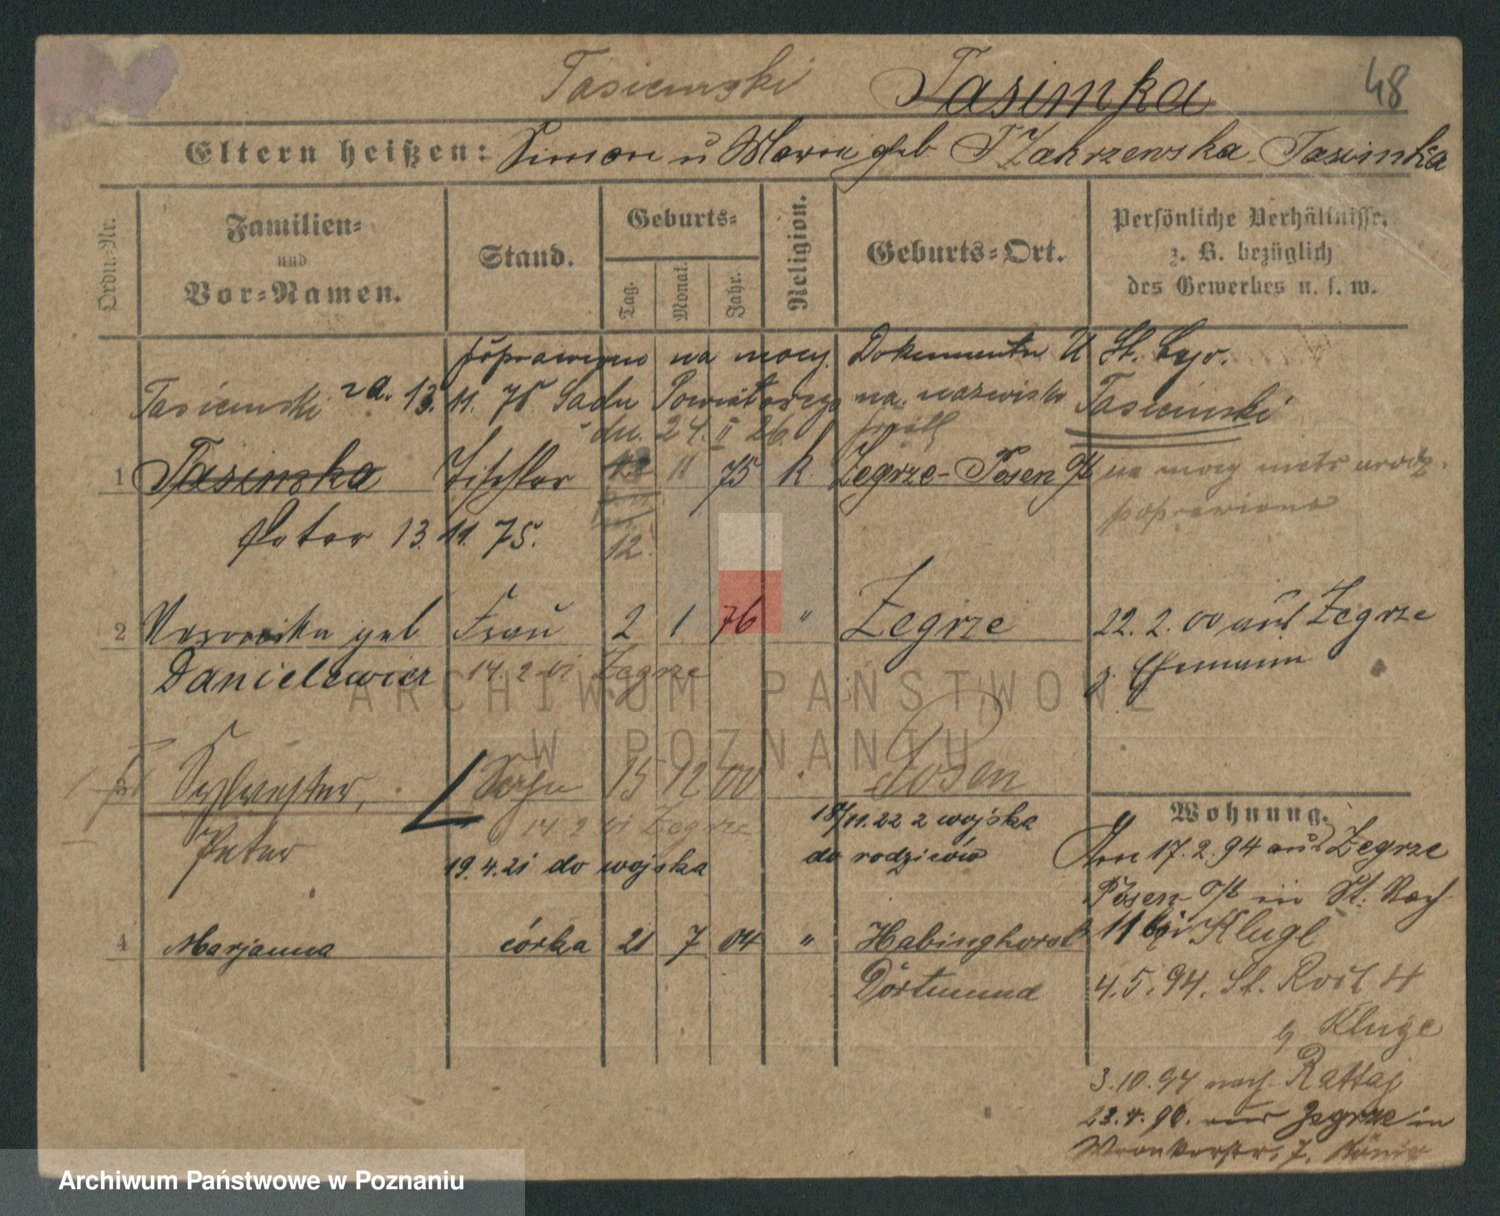 Tasiemski Tasimka 48
Eltern heißen: Simon u Marie geb Zakrzewska Tasimka
Ordn.-Nr.
Familien- und Vor-Namen.
Stand.
Geburts-
Tag. Monat. Jahr.
Religion.
Geburts-Ort.
Persönliche Verhältnisse.
z. B. bezüglich
des Gewerbes u. s. w.
na mocy Dokumentu U St. Cyw.
Tasiemski 13. 11. 75 Sądu Powiatowego na nazwisko Tasiemski
dn. 24. II 26.
1 Tasimska Tischler 11 75 k Zegrze-Posen O/ na mocy metr urodz.
poprawiono
Peter 13. 11. 75. 12.
2 geb Frau 2 1 76 " Zegrze 22. 2. 00 aus Zegrze
Danielewicz 14. 2 01 Zegrze z. Ehemann
3 Sylvester, Sohn 15 12 00 Posen
Peter 14. 2 01 Zegrze 18/11.22 z wojska
19. 4. 21 do wojska do rodziców
4 Marjanna córka 21 7 04 " Habinghorst
Dortmund
Wohnung.
17. 2. 94 aus Zegrze
Posen O/ in St. Roch
11 bei Kluge
4. 5. 94. St. Roch 4
b Kluge
3. 10. 94 nach Rattaj
23. 4. 96. aus Zegrze in
Wronkerstr. 7.
ARCHIWUM PAŃSTWOWE
W POZNANIU
Archiwum Państwowe w Poznaniu